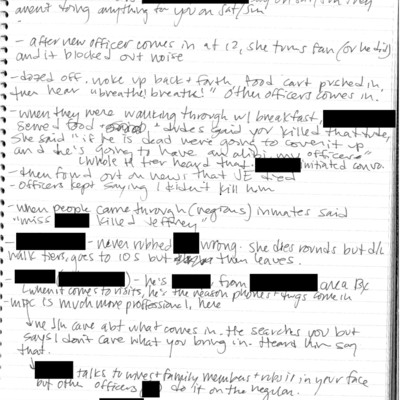 aren't doing anything to you on sat/sun
- after new officer comes in at 12, she turns fan (or he did)
and it blocked out noise
- dozed off. woke up back + forth, food cart pushed in.
then hear "breathe! breathe!" Other officers comes in.
- when they were walking through w/ breakfast,
served food + dudes said you killed that dude,
she said "if he is dead we're going to cover it up
and he's going to have an alibi, my officers"
(whole tier heard that. initiated convo.
- then found out on news that JE died
- officers kept saying I didn't kill him
- when people came through (negrons) inmates said
"miss killed Jeffrey"
- - never rubbed wrong. She does rounds but d/n
walk tiers, goes to 10S but then leaves.
- ( ) - he's from area Bx
(when it comes to visits, he's the reason phones + things come in
MDC is much more professional, here
he d/n care abt what comes in. He searches you but
says I don't care what you bring in. Heard him say
that.
talks to wives + family members + rubs it in your face
but other officers do it on the regular.